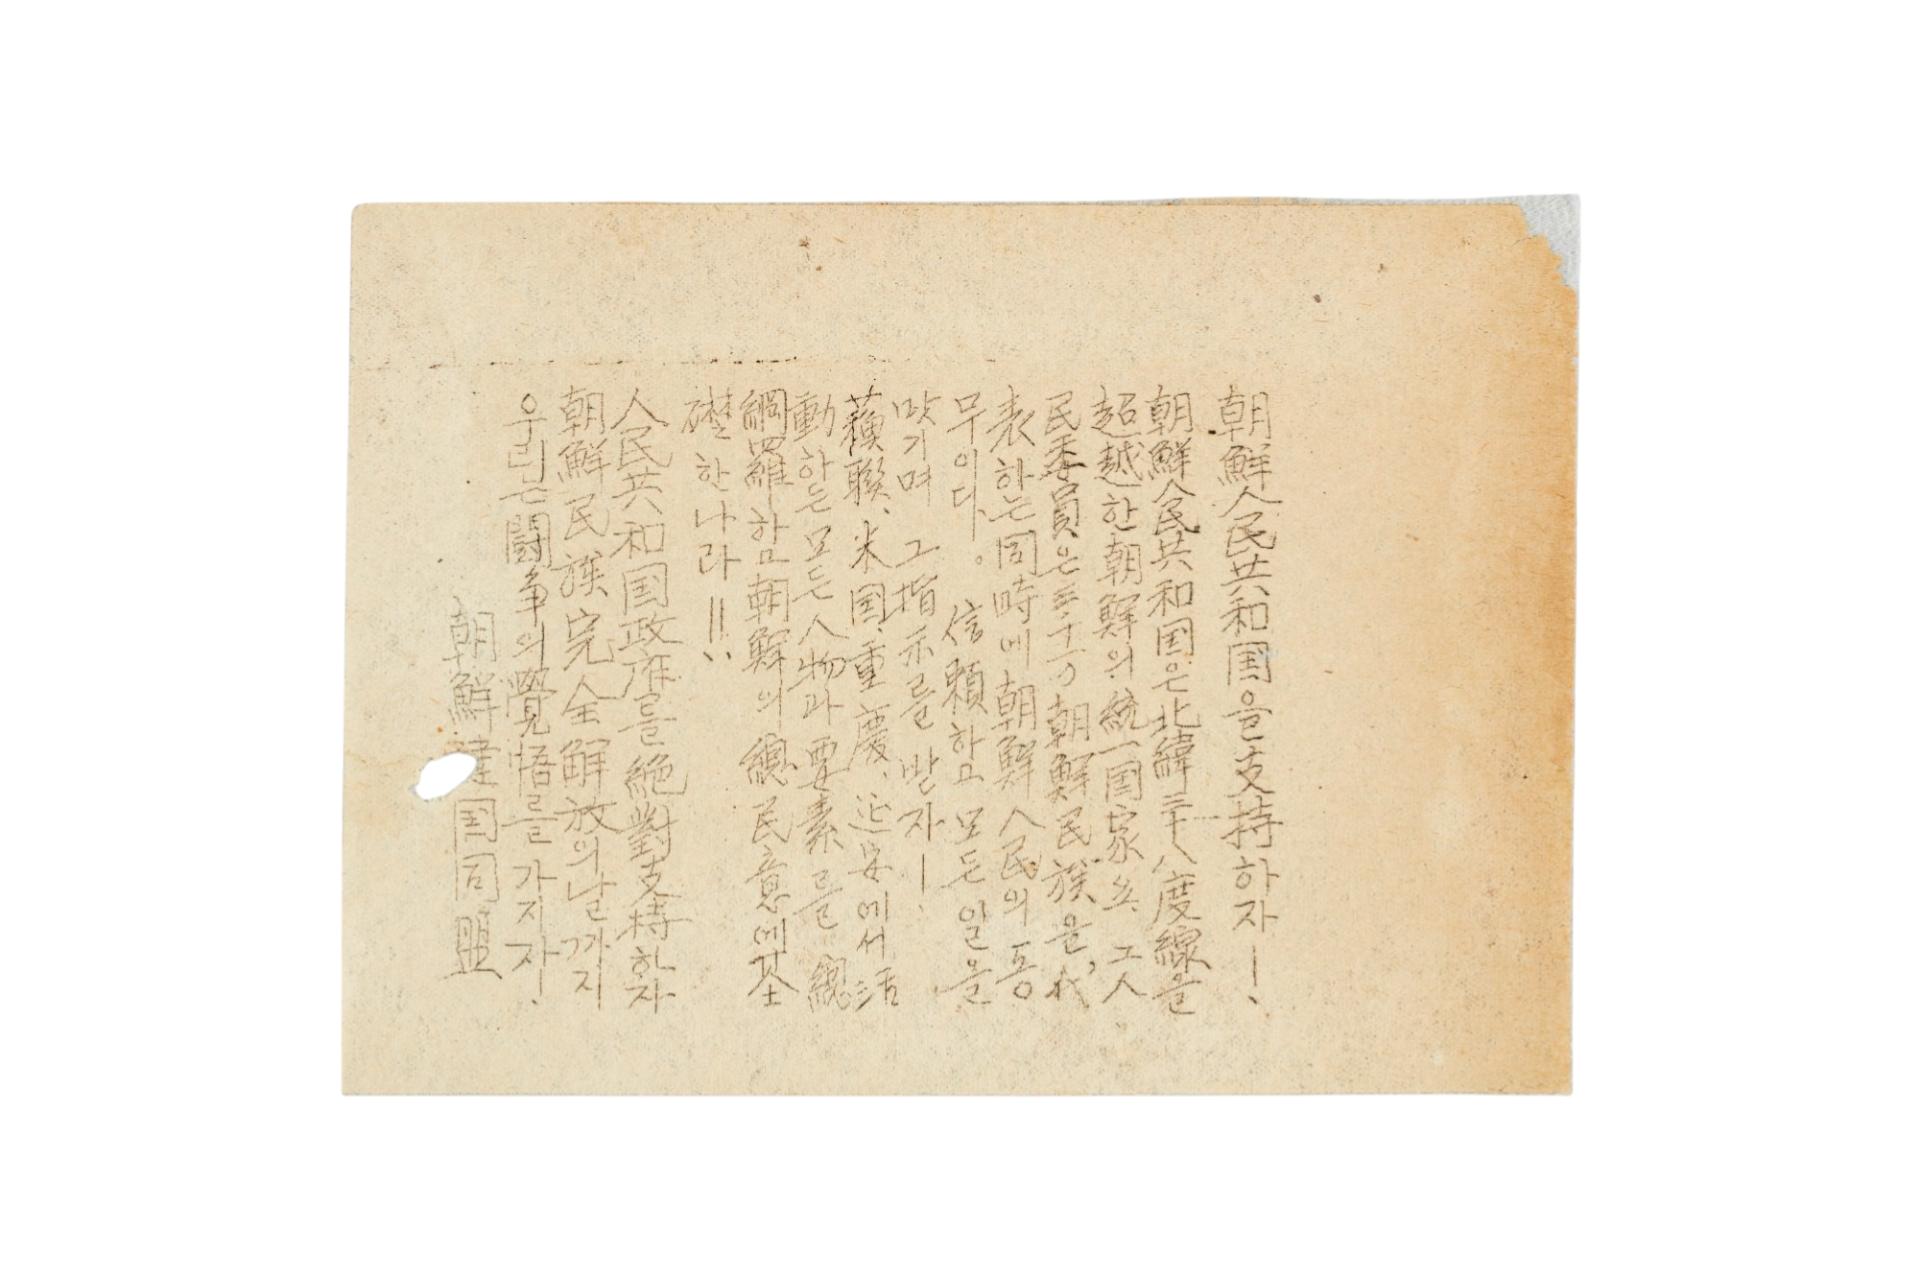 朝鮮人民共和国을支持하자―!
朝鮮人民共和国은北緯三十八度線을
超越한朝鮮의統一国家요, 그人
民委員은三千万朝鮮民族을, 代
表하는同時에朝鮮人民의동
무이다. 。信賴하고모든일을
맛기며 그指示를받자―!
蘇聯、米国、重慶、延安에서活
動하는모든人物과要素를總
網羅하고朝鮮의總民意에基
礎한나라!!
人民共和国政府를絶對支持하자
朝鮮民族完全解放의날까지
우리는鬪争의覺悟를가지자!
朝鮮建国同盟